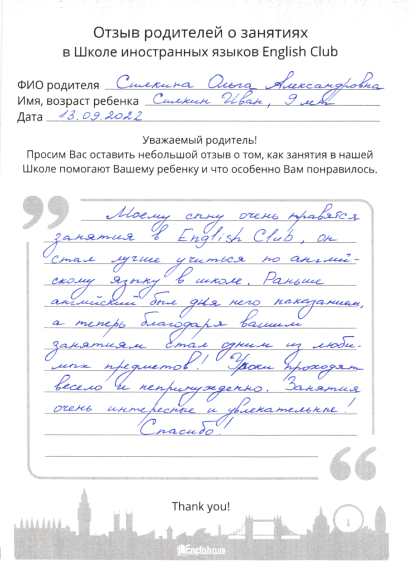 Отзыв родителей о занятиях
в Школе иностранных языков English Club
ФИО родителя Силкина Ольга Александровна
Имя, возраст ребенка Силкин Иван, 9 лет
Дата 13.09.2022
Уважаемый родитель!
Просим Вас оставить небольшой отзыв о том, как занятия в нашей
Школе помогают Вашему ребенку и что особенно Вам понравилось.
Моему сыну очень нравятся
занятия в English Club, он
стал лучше учиться по англий-
скому языку в школе. Раньше
английский был для него наказанием,
а теперь благодаря вашим
занятиям стал одним из люби-
мых предметов! Уроки проходят
весело и непринужденно. Занятия
очень интересные и увлекательные!
Спасибо!
Thank you!
English Club